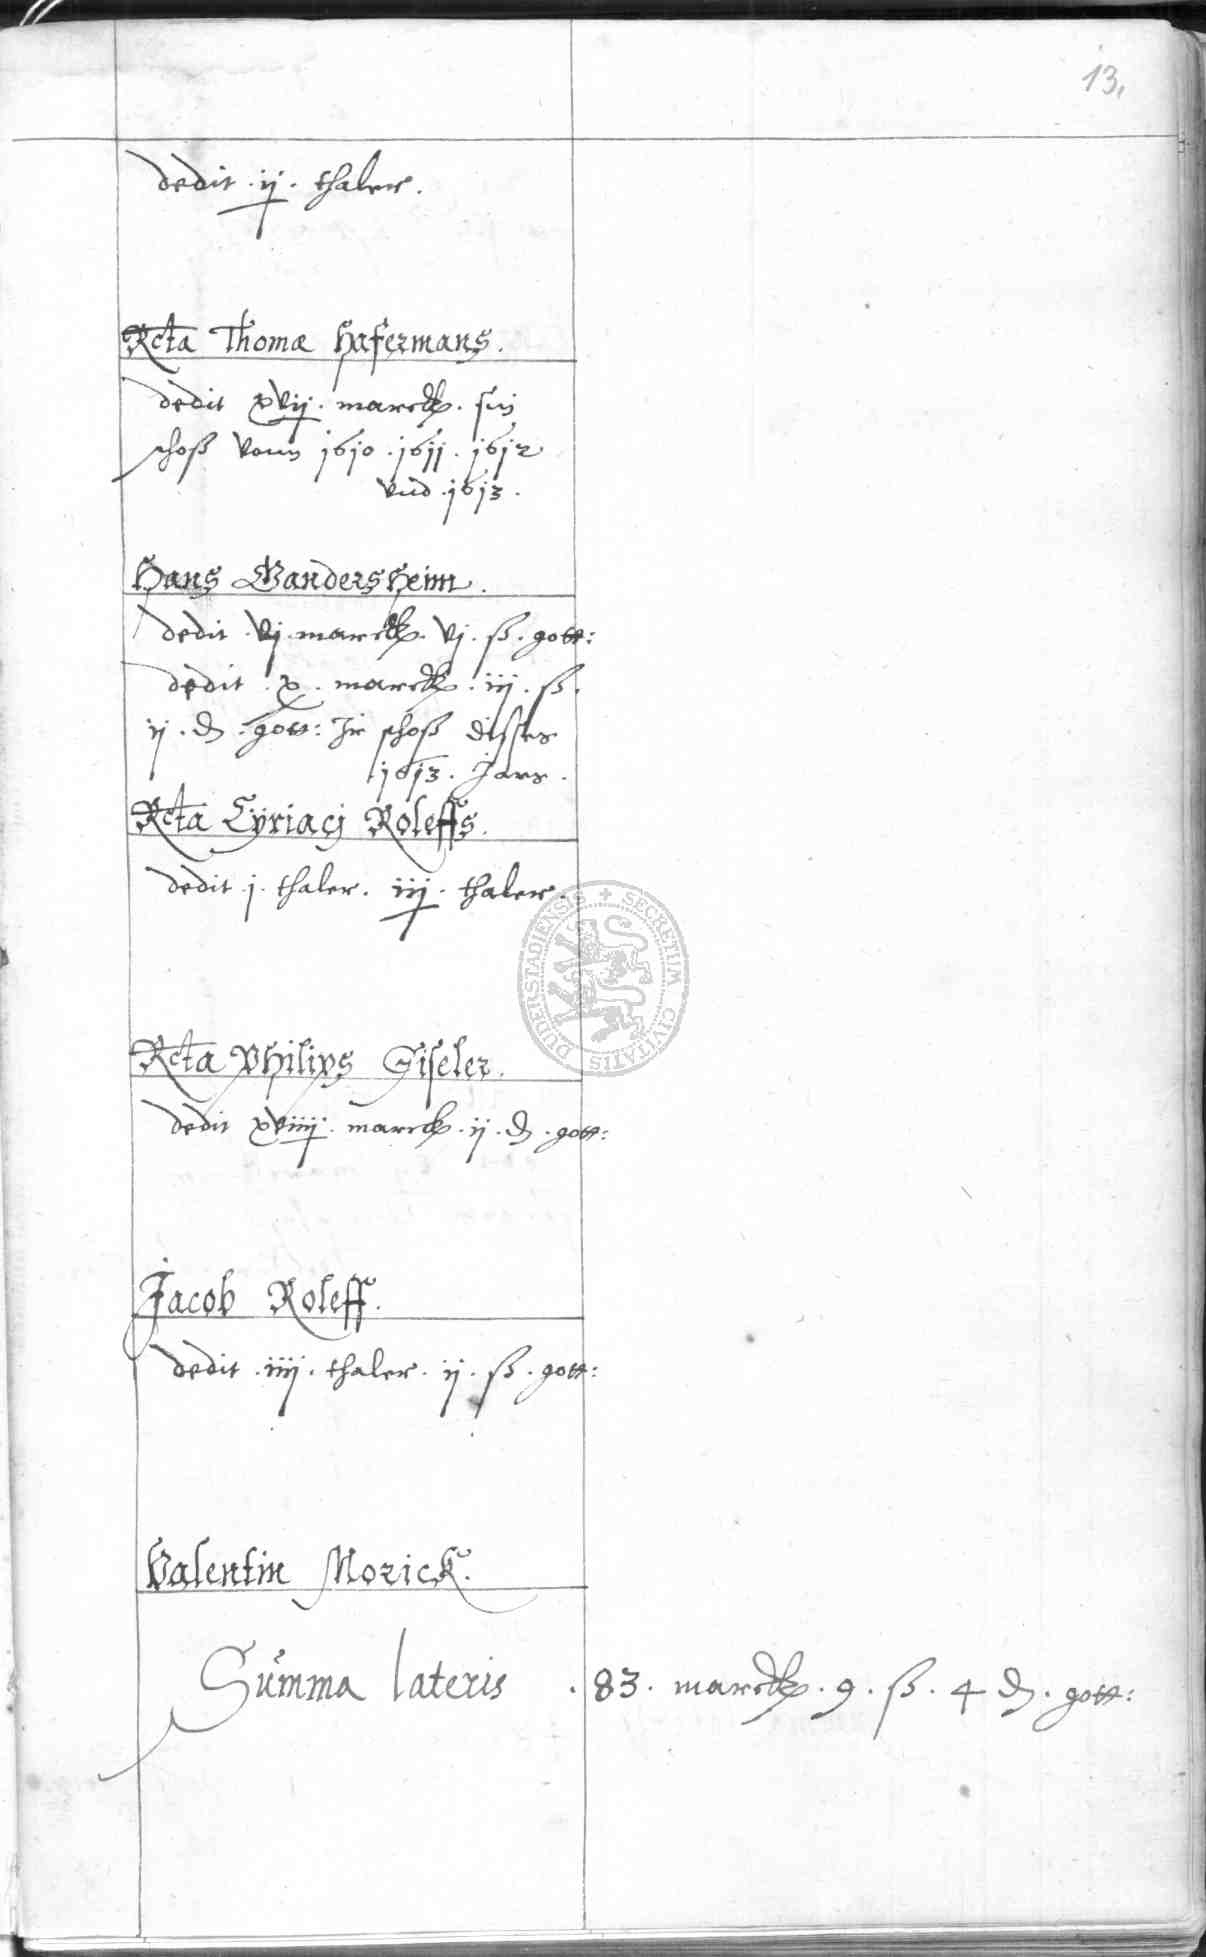 13.
dedit . ij . thaler .
Rcta Thomæ Hafermans .
dedit xvij . marck . sin
schoß vonn 1610 . 1611 . 1612
vnd . 1613 .
Hans Gandersheim .
dedit . vj . marck . vj . ß . gott:
dedit . x . marck . iij . ß .
ij . d . gott: Ir schoß disses
1613 . Jars .
Rcta Cyriacj Roleffs .
dedit . j . thaler . iij . thaler .
DUDERSTADIENSIS + SECRETUM CIVITATIS
Rcta Philips Giseler .
dedit xviiij . marck . ij . d . gott:
Jacob Roleff .
dedit . iiij . thaler . ij . ß . gott:
Valentin Morick .
Summa lateris . 83 . marck . 9 . ß . 4 d . gott: